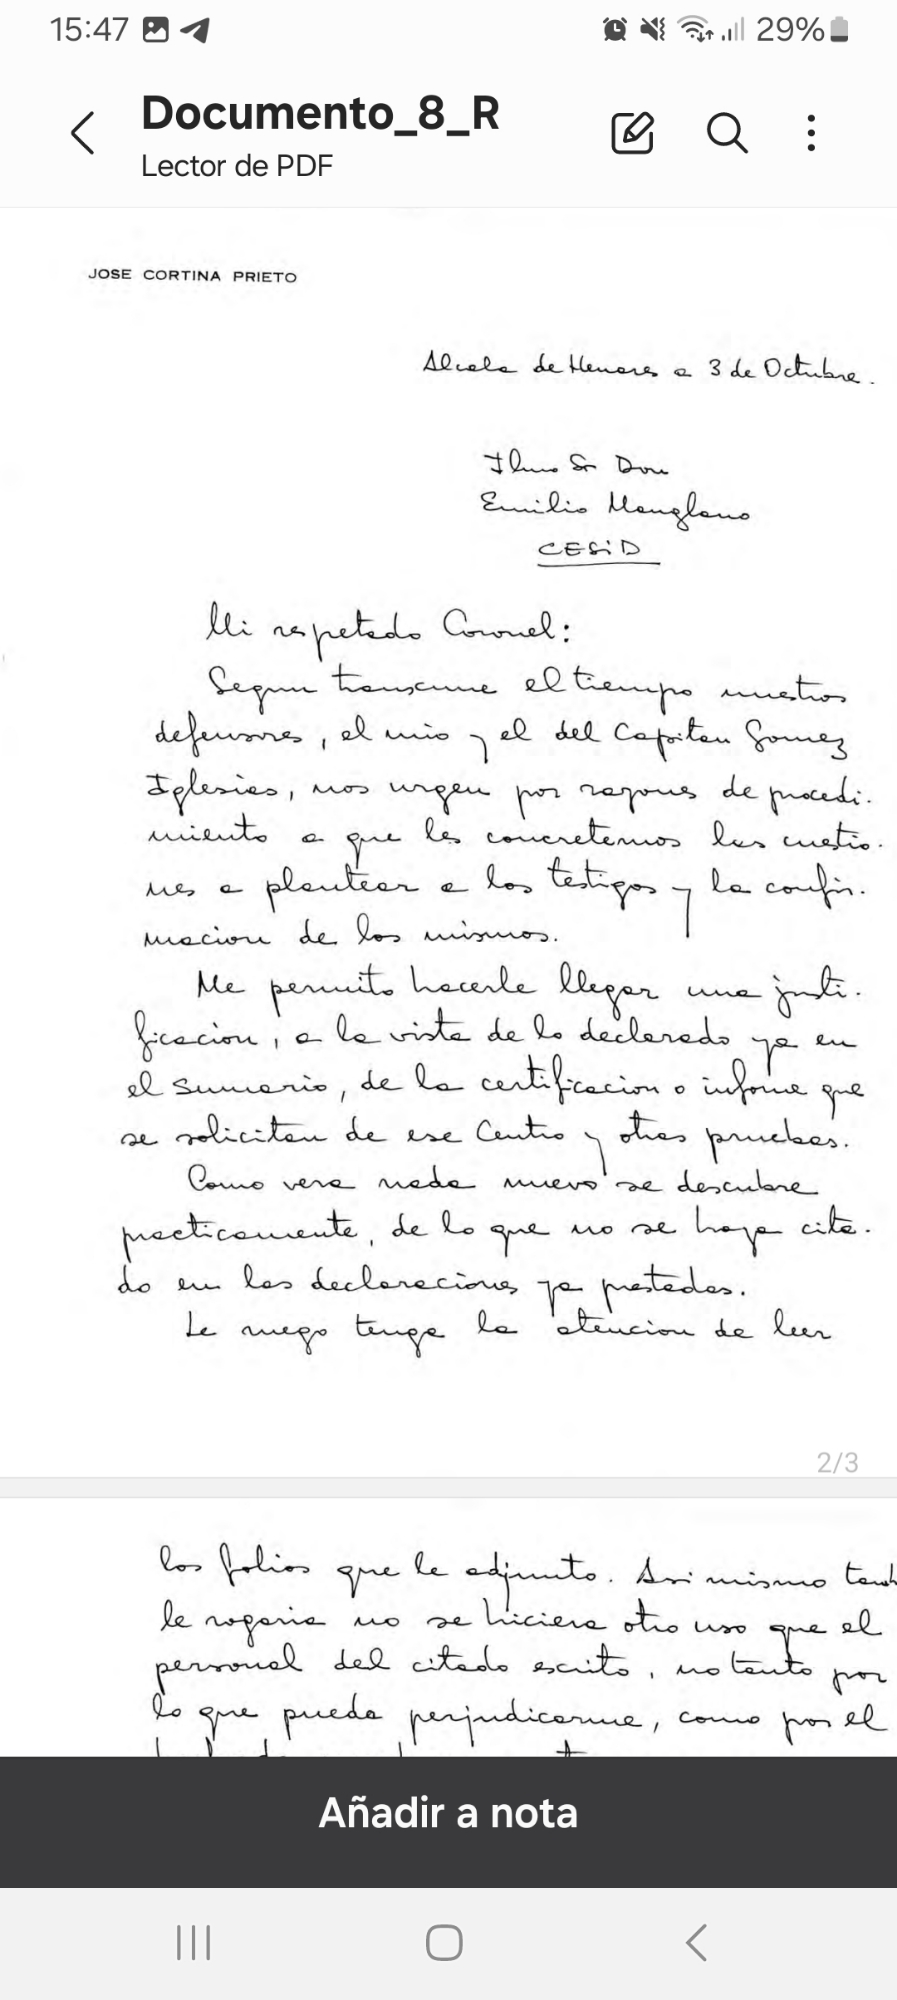 15:47 29%
Documento_8_R
Lector de PDF
JOSE CORTINA PRIETO
Alcala de Henares a 3 de Octubre.
Ilmo Sr Don
Emilio Manglano
CESiD
Mi respetado Coronel:
Segun transcurre el tiempo nuestros
defensores, el mio y el del Capitan Gomez
Iglesias, nos urgen por razones de procedi-
miento a que les concretemos las cuestio-
nes a plantear a los testigos y la confir-
macion de los mismos.
Me permito hacerle llegar una justi-
ficacion, a la vista de lo declarado ya en
el sumario, de la certificacion o informe que
se solicitan de ese Centro y otras pruebas.
Como vera nada nuevo se descubre
practicamente, de lo que no se haya cita-
do en las declaraciones ya prestadas.
Le ruego tenga la atencion de leer
2/3
los folios que le adjunto. Asi mismo tamb
le rogaria no se hiciera otro uso que el
personal del citado escrito, no tanto por
lo que pueda perjudicarme, como por el
Añadir a nota